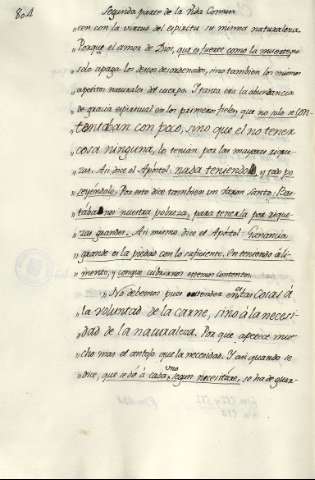 804 Segunda parte de la Vida Comun
"cen con la virtud del espiritu su misma naturaleza.
"Porque el amor de Dios, que es fuerte como la muerte, no
"solo apaga los deseos desordenados, sino tambien los mismos
"apetitos naturales del cuerpo. Y tanta era la abundancia
"de gracia espiritual en los primeros fieles, que no solo se con
"tentaban con poco, sino que el no tener
"cosa ninguna, lo tenian por las mayores rique
"zas. Asi dice el Apóstol: nada teniendo, y tan po
"seyéndolo. Por esto dice tambien un Varon Santo: Bas
"tábanos nuestra pobreza, para tenerla por rique
"zas grandes. Asi mismo dice el Apóstol: Ganancia
"grande es la piedad con lo suficiente. En teniendo ali
"mento, y conque cubrirnos estemos contentos.
"No debemos pues entender estas cosas á
"la voluntad de la carne, sino á la necesi
"dad de la naturaleza. Por que apetece mu
"cho mas el antojo que la necesidad. Y asi quando se
"dice, que se dé á cada uno segun necesitáre, se ha de guar-